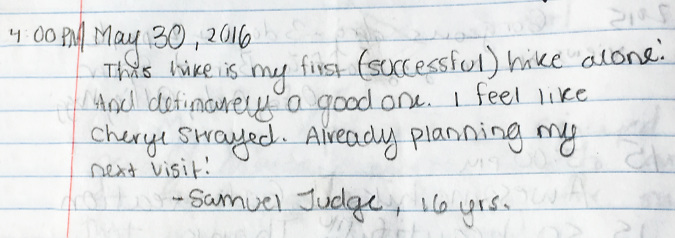 4:00 PM May 30, 2016
This hike is my first (successful) hike alone!
And definarely a good one. I feel like
Cheryl Strayed. Already planning my
next visit!
-Samuel Judge, 16 yrs.